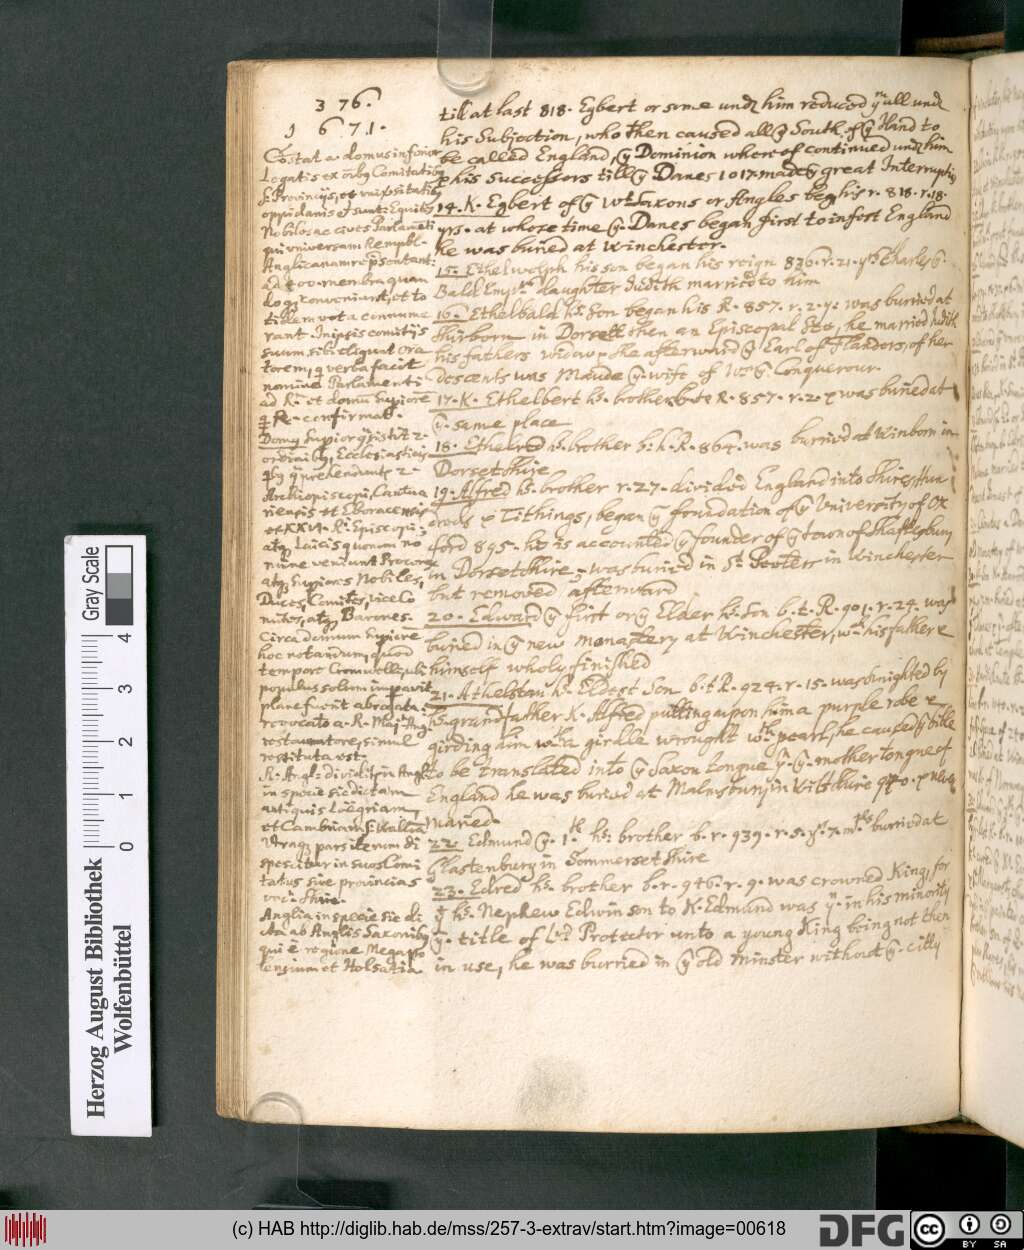 3 76.
1 6 71.
Costat a. domus inferior
Legatis ex
s. Provinciis, et
oppidanis et sunt: Equites
Nobiles ac cives Parlamenti
qui universam Rempbl.
Anglicanam repsentant.
ad 500. membra quan
doq; conveniunt, et to
tidem vota connume
rant. In ipsis comitiis
suum, sibi eliguat ora
torem, q verba facit
nomine Parlamenti
ad R. et domu Supiore
q R. confirmat.
Domus Superior
ordinibus, Ecclesiasticis
phendunt 2
Archiepiscopi, Cantua
riensis et Eboracensis
et XXVI. R. Episcopi,
atq; Laicis quorum no
mine veniunt Proceres
atq; Supiores Nobiles,
Duces, Comites, vice Co
mites, atq; Barones.
Circa domum Supiore
hoc notandum, quod
tempore Cromwelli, ubi
populus solum impavit
plane fuerit abrogata:
revocato a. R. Maj. Ang.
restauratore, simul
restituta est.
R. Angl: dividitur in Angl
in specie sic dictam
antiquis Loegriam
et Cambriam s. Wallia
Utraq; pars iterum di
spescitur in suos Comi
tatus sive provincias
voc. Shire.
Anglia in specie sic di
cta ab Anglis Saxonibq
qui e regione Megapo
lensium et Holsatia
till at last 818. Egbert or some undr him reduced ym all undr
his Subjection, who then caused all ye South of ye Iland to
be called England, ye Dominion whereof continued undr him
& his Successors till ye Danes 1017. made ye great Interruptio
14. K. Egbert of ye Wt Saxons or Angles beg his r. 818. r. 18.
yrs. at whose time ye Danes began first to infest England
he was buried at Winchester.
15. Ethelwolph his son began his reign 836. r. 21. yrs Charles ye
Bald Empr daughter Judith married to him
16. Ethelbald hs. Son began his R. 857. r. 2. y. was buried at
Shirborn in Dorsett then an Episcopal See, he married Judith
his fathers widow she afterward ye Earl of Flanders, of her
Descents was Maude ye wife of Wm ye Conquerour.
17. K. Ethelbert hs. brother R. 857. r. 2. & was buried at
ye same place
18. Ethelred hs. brother b. h. R. 864. was burried at Winborn in
Dorsetshire
19. Alfred hs. brother r. 27. divided England into Shires, Hun
dreds & Tithings, began ye foundation of ye University of Ox
ford 895. he is accounted ye founder of ye town of Shaftsbury
in Dorsetshire, was buried in St. Peeters in Winchester
but removed afterward
20. Edward ye first or ye Elder hs. Son b. t. R. 901. r. 24. was
buried in ye new monastery at Winchester, wch his father &
himself wholy finished
21. Athelstan hs. Eldest Son b. t. R. 924. r. 15. was knighted by
hs. grandfather K. Alfred putting upon him a purple robe &
girding him wth a girdle wrought wth pearl, he caused ye bible
to be translated into ye Saxon tongue ye mother tongue of
England he was buried at Malmsbury in Wiltshire 940. & never
maried.
22. Edmund ye 1. hs. brother b. r. 939. r. 5. ys. 7. mths burried at
Glastenbury in Sommersetshire
23. Edred hs. brother b. r. 946. r. 9. was crowned King, for
yt hs. Nephew Edwin son to K. Edmund was yn in his minority
ye title of Lrd Protecter unto a young King being not then
in use, he was burried in ye old minster without ye citty
Gray Scale
0 1 2 3 4
Herzog August Bibliothek
Wolfenbüttel
(c) HAB http://diglib.hab.de/mss/257-3-extrav/start.htm?image=00618
DFG
cc BY SA